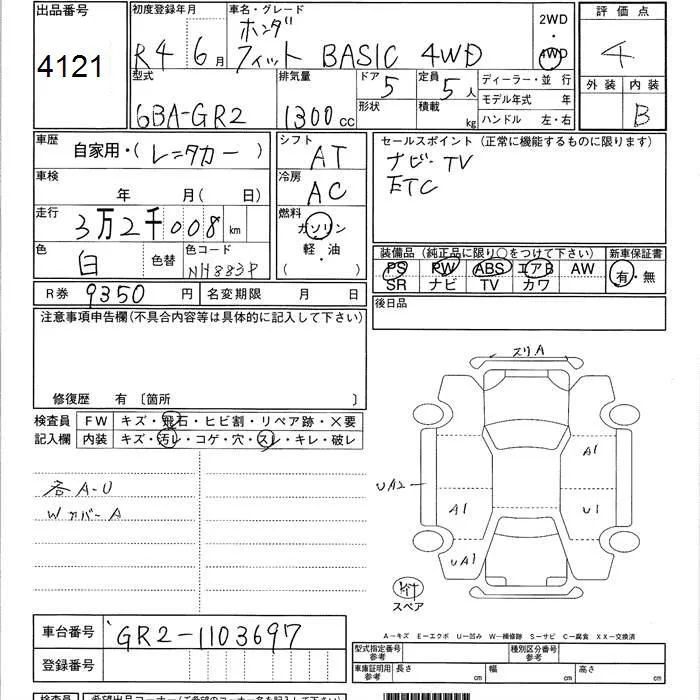 出品番号 初度登録年月 車名・グレード 2WD 評価点
4121 R4 6月 ホンダ フィット BASIC 4WD ・ 4WD 4
型式 排気量 ドア 5 定員 5人 ディーラー・並行 外装 内装
形状 積載 kg モデル年式 年
6BA-GR2 1300cc ハンドル 左・右 B
車歴 自家用・(レンタカー) シフト AT セールスポイント(正常に機能するものに限ります)
車検 年 月(日) 冷房 AC ナビ-TV
ETC
走行 3万2千008km 燃料 ガソリン
軽・油
( ・ )
色 白 色替 色コード NH883P
装備品(純正品に限り○をつけて下さい) 新車保証書
PS PW ABS エアB AW 有・無
SR ナビ TV カワ
R券 9350円 名変期限 月 日 後日品
注意事項申告欄(不具合内容等は具体的に記入して下さい)
修復歴 有〔箇所 〕
検査員 FW キズ・飛石・ヒビ割・リペア跡・×要
記入欄 内装 キズ・汚レ・コゲ・穴・スレ・キレ・破レ
各A-U
Wカバー A
スリA
A1
UA2
A1 U1
UA1
スペア
車台番号 GR2-1103697
登録番号
A-キズ E-エクボ U-凹み W-補修跡 S-サビ C-腐食 XX-交換済
型式指定番号 参考 種別区分番号 参考
車庫証明用 参考 長さ cm 幅 cm 高さ cm
検査員 希望出品コーナー(ご希望のコーナー名を記入下さい)